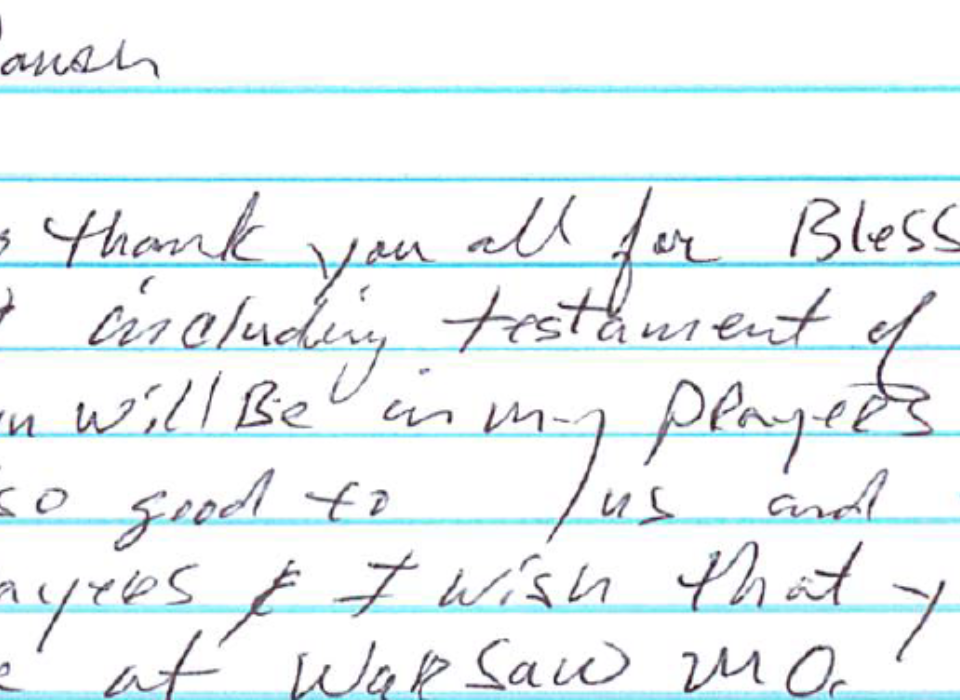 Parish
thank you all for Bless
including testament of
will Be in my PRayeRs
so good to us and
ayeRs & I wish that y
e at WaRSaw MO.